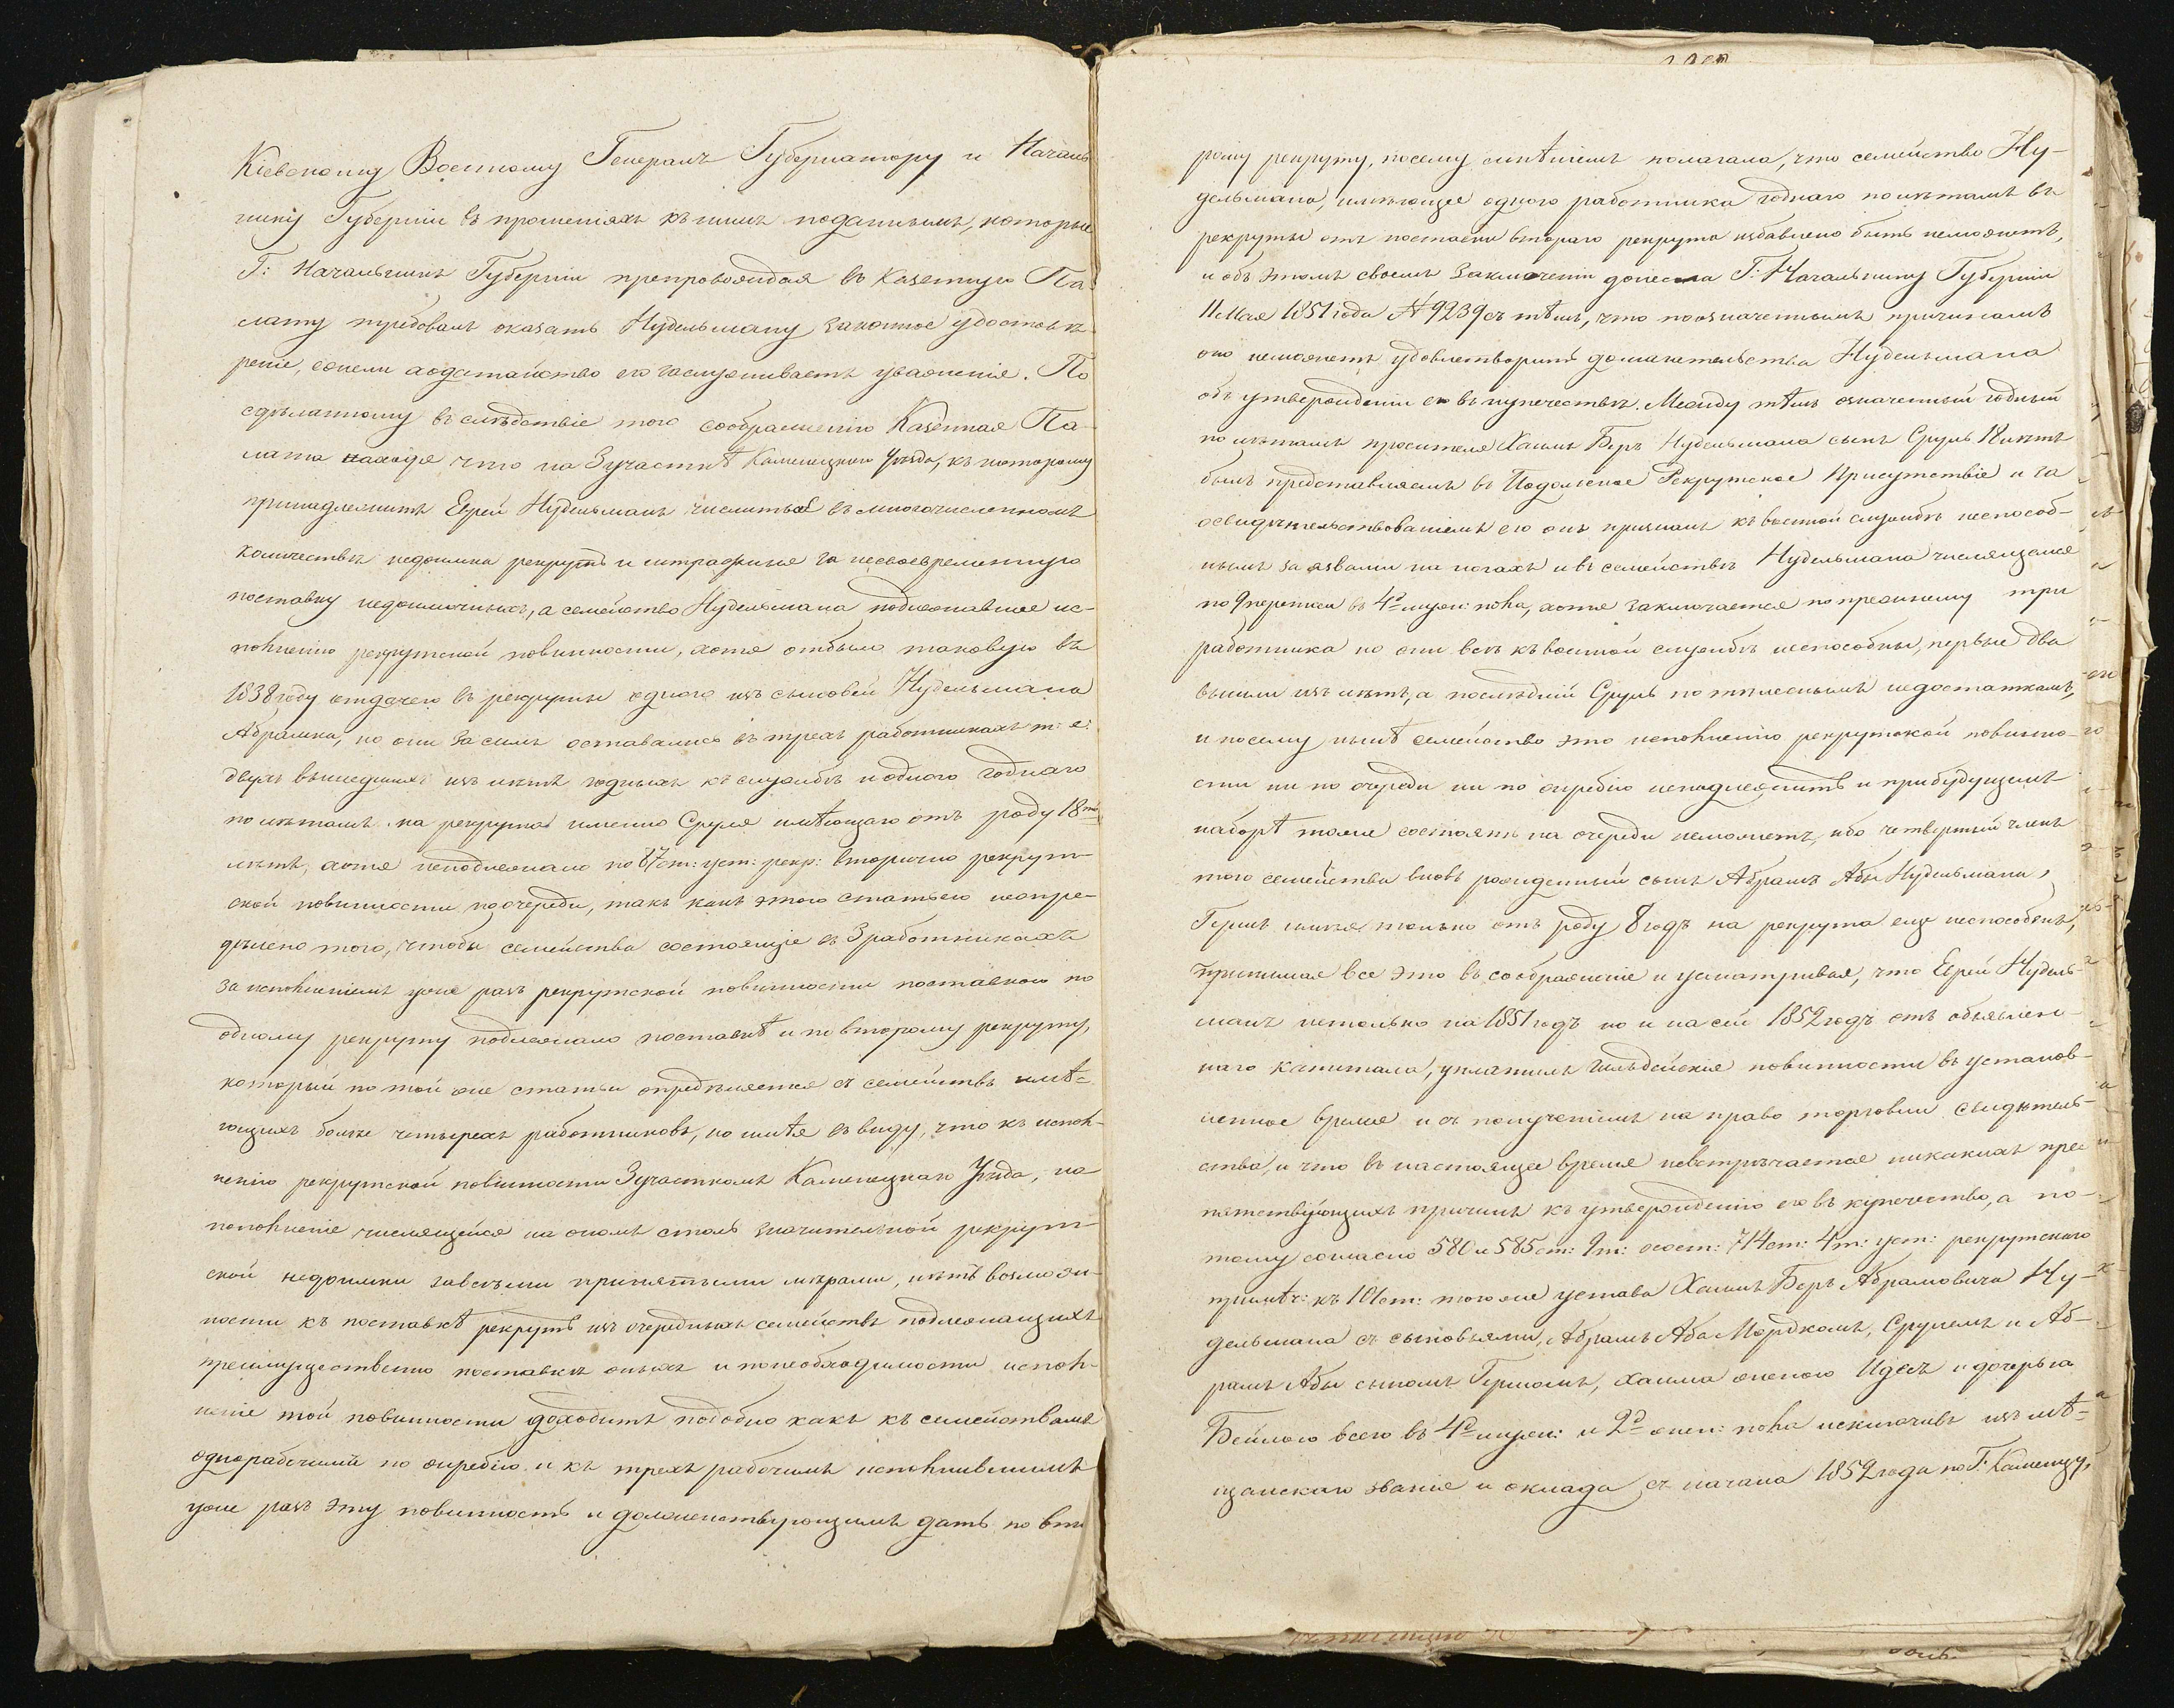 Кіевскому Военному Генералъ Губернатору и Началь
нику Губерніи въ прошеніяхъ къ нимъ поданныхъ, которые
Г: Начальникъ Губерніи препровождая въ Казенную Па-
лату требовалъ оказать Нудельману законное удостовѣ
реніе, если ходатайство его заслуживаетъ уваженія. По
сдѣланному въ слѣдствіе того соображенію Казенная Па-
лата находя что на 3 участкѣ Каменецкаго Уѣзда, къ которому
принадлежитъ Еврей Нудельманъ числится въ многочисленномъ
количествѣ недоимка рекрутъ и штрафные за несвоевременную
поставку недоимочныхъ, а семейство Нудельмана подлежавшее ис-
полненію рекрутской повинности, хотя отбыло таковую въ
1838 году отдачею въ рекруты одного изъ сыновей Нудельмана
Абрамка, но они за симъ оставались въ трехъ работникахъ т: е:
двухъ вышедшихъ изъ лѣтъ годныхъ къ службѣ и одного годнаго
по лѣтамъ на рекрута именно Сруля имѣющаго отъ роду 18ть
лѣтъ, хотя неподлежало по 87 ст: уст: рекр: вторично рекрут-
ской повинности по очереди, такъ какъ этою статьею неопре-
дѣлено того, чтобы семейства состоящіе въ 3 работникахъ
за исполненіемъ уже разъ рекрутской повинности поставкою по
одному рекруту подлежало поставкѣ и по второму рекруту,
который по той же статьи опредѣляется съ семействъ имѣ-
ющихъ болѣе четырехъ работниковъ, но имѣя въ виду, что къ испол-
ненію рекрутской повинности 3 участкомъ Каменецкаго Уѣзда, на
пополненіе числящейся на ономъ столь значительной рекрут-
ской недоимки за всѣми принятыми мѣрами, нѣтъ возмож-
ности къ поставкѣ рекрутъ изъ очередныхъ семействъ подлежащихъ
преимущественно поставкѣ оныхъ и по необходимости испол-
неніе той повинности доходитъ подобно какъ къ семействамъ
однорабочимъ по жребію и къ трехъ рабочимъ исполнившимъ
уже разъ эту повинность и долженствующимъ дать по вто
рому рекруту, посему мнѣніемъ полагала, что семейство Ну-
дельмана, имѣющее одного работника годнаго по лѣтамъ въ
рекруты отъ поставки втораго рекрута избавлено быть неможетъ,
и объ этомъ своемъ заключеніи донесла Г: Начальнику Губерніи
11 Мая 1851 года № 9239 съ тѣмъ, что по означеннымъ причинамъ
оно неможетъ удовлетворить домогательства Нудельмана
объ утвержденіи его въ купечествѣ. Между тѣмъ означенный годный
по лѣтамъ просителя Хаимъ Беръ Нудельмана сынъ Сруль 18 лѣтъ
былъ представляемъ въ Подольское Рекрутское Присутствіе и за
освидѣтельствованіемъ его онъ признанъ къ военной службѣ неспособ-
нымъ за язвами на ногахъ и въ семействѣ Нудельмана числящемся
по 9 переписи въ 4х мужск: пола, хотя заключается по прежнему три
работника но они всѣ къ военной службѣ неспособны, первые два
вышли изъ лѣтъ, а послѣдній Сруль по тѣлеснымъ недостаткамъ,
и посему нынѣ семейство это исполненію рекрутской повинно-
сти ни по очереди ни по жребію неподлежитъ и при будущемъ
наборѣ тоже состоять на очереди неможетъ, ибо четвертый членъ
того семейства вновь рожденный сынъ Абрамъ Абы Нудельмана,
Гершъ имѣя только отъ роду 8 годъ на рекрута еще неспособенъ,
принимая все это въ соображеніе и усматривая, что Еврей Нудель-
манъ нетолько на 1851 годъ но и на сей 1852 годъ отъ объявлен-
наго капитала, уплатилъ гильдейскія повинности въ установ-
ленное время и съ полученіемъ на право торговли свидѣтель-
ства, и что въ настоящее время невстрѣчается никакихъ пре-
пятствующихъ причинъ къ утвержденію его въ купечество, а по-
тому согласно 580 и 585 ст: 9 т: о сост: 714 ст: 4 т: уст: рекрутскаго
примѣч: къ 101 ст: того же устава Хаимъ Беръ Абрамовича Ну-
дельмана съ сыновьями, Абрамъ Аба Мордкомъ, Срулемъ и Аб-
рамъ Абы сыномъ Гершомъ, Хаима женою Идесъ и дочерью
Бейлою всего въ 4х мужск: и 2х женс: пола исключивъ изъ мѣ-
щанскаго званія и оклада съ начала 1852 года по Г: Каменцу,